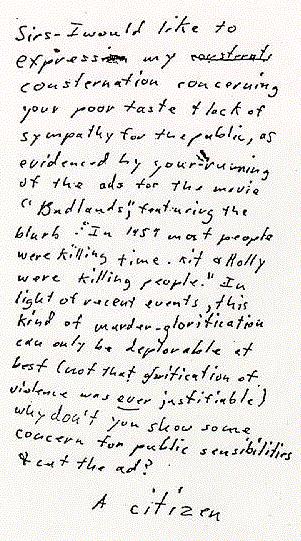 Sirs- I would like to
expression my consternati
consternation concerning
your poor taste & lack of
sympathy for the public, as
evidenced by your running
of the ads for the movie
"Badlands," featuring the
blurb - "In 1959 most people
were killing time. Kit & Holly
were killing people." In
light of recent events, this
kind of murder-glorification
can only be deplorable at
best (not that glorification of
violence was ever justifiable)
why don't you show some
concern for public sensibilities
& cut the ad?
A citizen